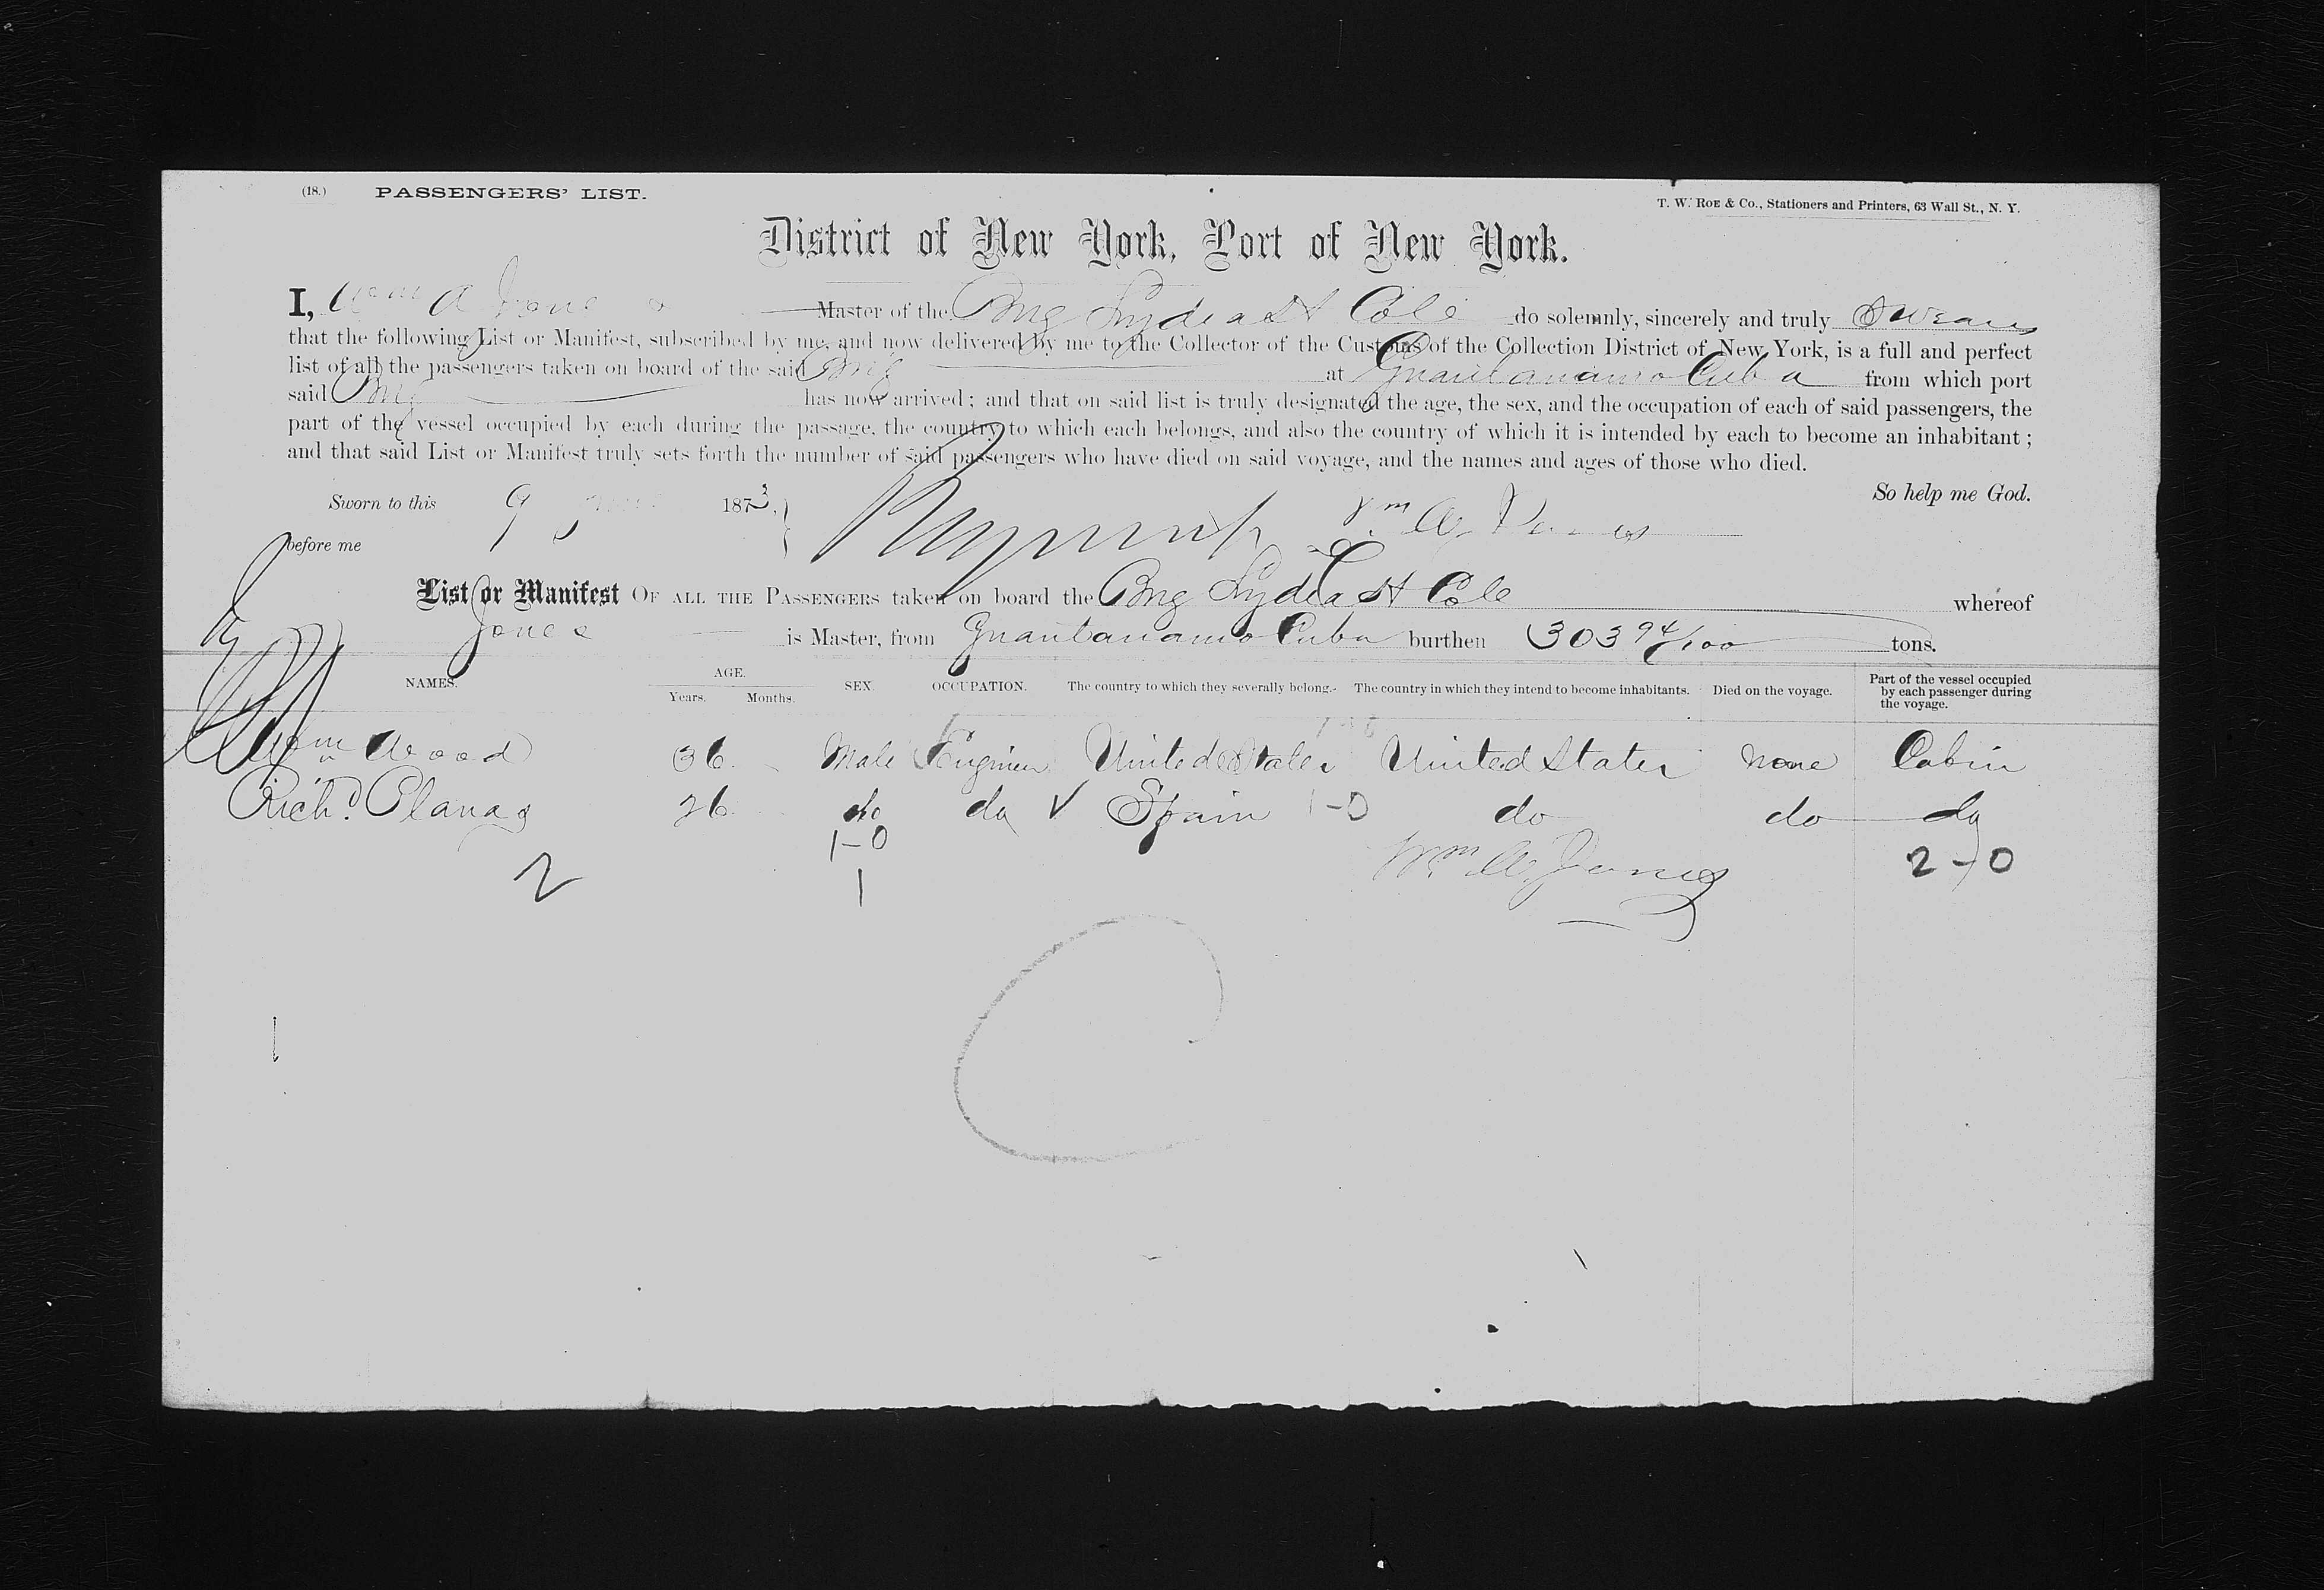 (18.) PASSENGERS' LIST.
T. W. ROE & Co., Stationers and Printers, 63 Wall St., N. Y.
District of New York, Port of New York.
I, Wm A Jones Master of the Brig Lydia H Cole do solemnly, sincerely and truly Swear
that the following List or Manifest, subscribed by me, and now delivered by me to the Collector of the Customs of the Collection District of New York, is a full and perfect
list of all the passengers taken on board of the said Brig at Guantanamo Cuba from which port
said Brig has now arrived; and that on said list is truly designated the age, the sex, and the occupation of each of said passengers, the
part of the vessel occupied by each during the passage, the country to which each belongs, and also the country of which it is intended by each to become an inhabitant;
and that said List or Manifest truly sets forth the number of said passengers who have died on said voyage, and the names and ages of those who died.
So help me God.
Sworn to this 9 1873, Wm A. Jones
before me
List or Manifest OF ALL THE PASSENGERS taken on board the Brig Lydia H Cole whereof
Jones is Master, from Guantanamo Cuba burthen 303 94/100 tons.
NAMES. AGE. Years. Months. SEX. OCCUPATION. The country to which they severally belong. The country in which they intend to become inhabitants. Died on the voyage. Part of the vessel occupied by each passenger during the voyage.
Wm Wood 36 Male Engineer United States United States None Cabin
Richd. Planas 26 do do √ Spain 1-0 do do do
1-0
2 1 Wm A. Jones 2-0
C